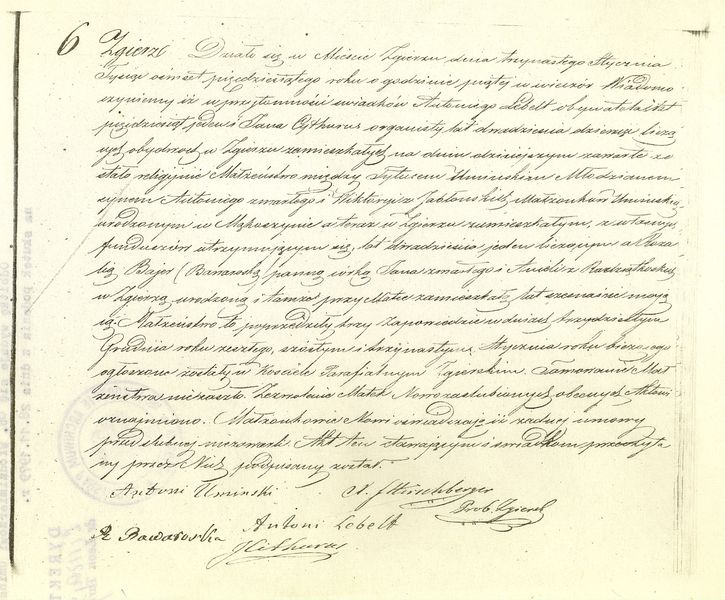 6 Zgierz Działo się w Mieście Zgierzu dnia trzynastego Stycznia
Tysiąc ośmset pięćdziesiątego roku o godzinie piątej w wieczór Wiadomo
czyniemy iż w przytomności świadków Antoniego Lebelt obywatela lat
pięćdziesiąt jeden i Jana Cythurus organisty lat dwadzieścia dziewięć liczą
cych obydwóch w Zgierzu zamieszkałych na dniu dzisiejszym zawarte zo
stało religijnie Małżeństwo między Tytusem Umińskim Młodzianem
synem Antoniego zmarłego i Wiktoryi z Jabłońskich Małżonków Umińskich
urodzonym w Mąkoszynie a teraz w Zgierzu zamieszkałym, z własnych
funduszów utrzymującym się, lat dwadzieścia jeden liczącym a Roza
lią Bajer (Bawarska) panną córką Jana zmarłego i Anieli z
w Zgierzu urodzoną i tamże przy Matce zamieszkałą lat szesnaście mają
cą. Małżeństwo to poprzedziły trzy Zapowiedzie w dniach trzydziestym
Grudnia roku zeszłego, szóstym i trzynastym Stycznia roku bieżącego
ogłoszone zostały w Kościele Parafialnym Zgierskim. Tamowanie Mał
żeństwa nie zaszło. Zezwolenie Matek Nowozaślubionych obecnych Aktowi
oznajmiono. Małżonkowie Nowi oświadczają iż żadnej umowy
przedślubnej niezawarli. Akt ten stawającym i świadkom przeczyta
ny przez Nich podpisany został.
Antoni Umiński
Prob. Zgiersk
R Bawarska Antoni Lebelt